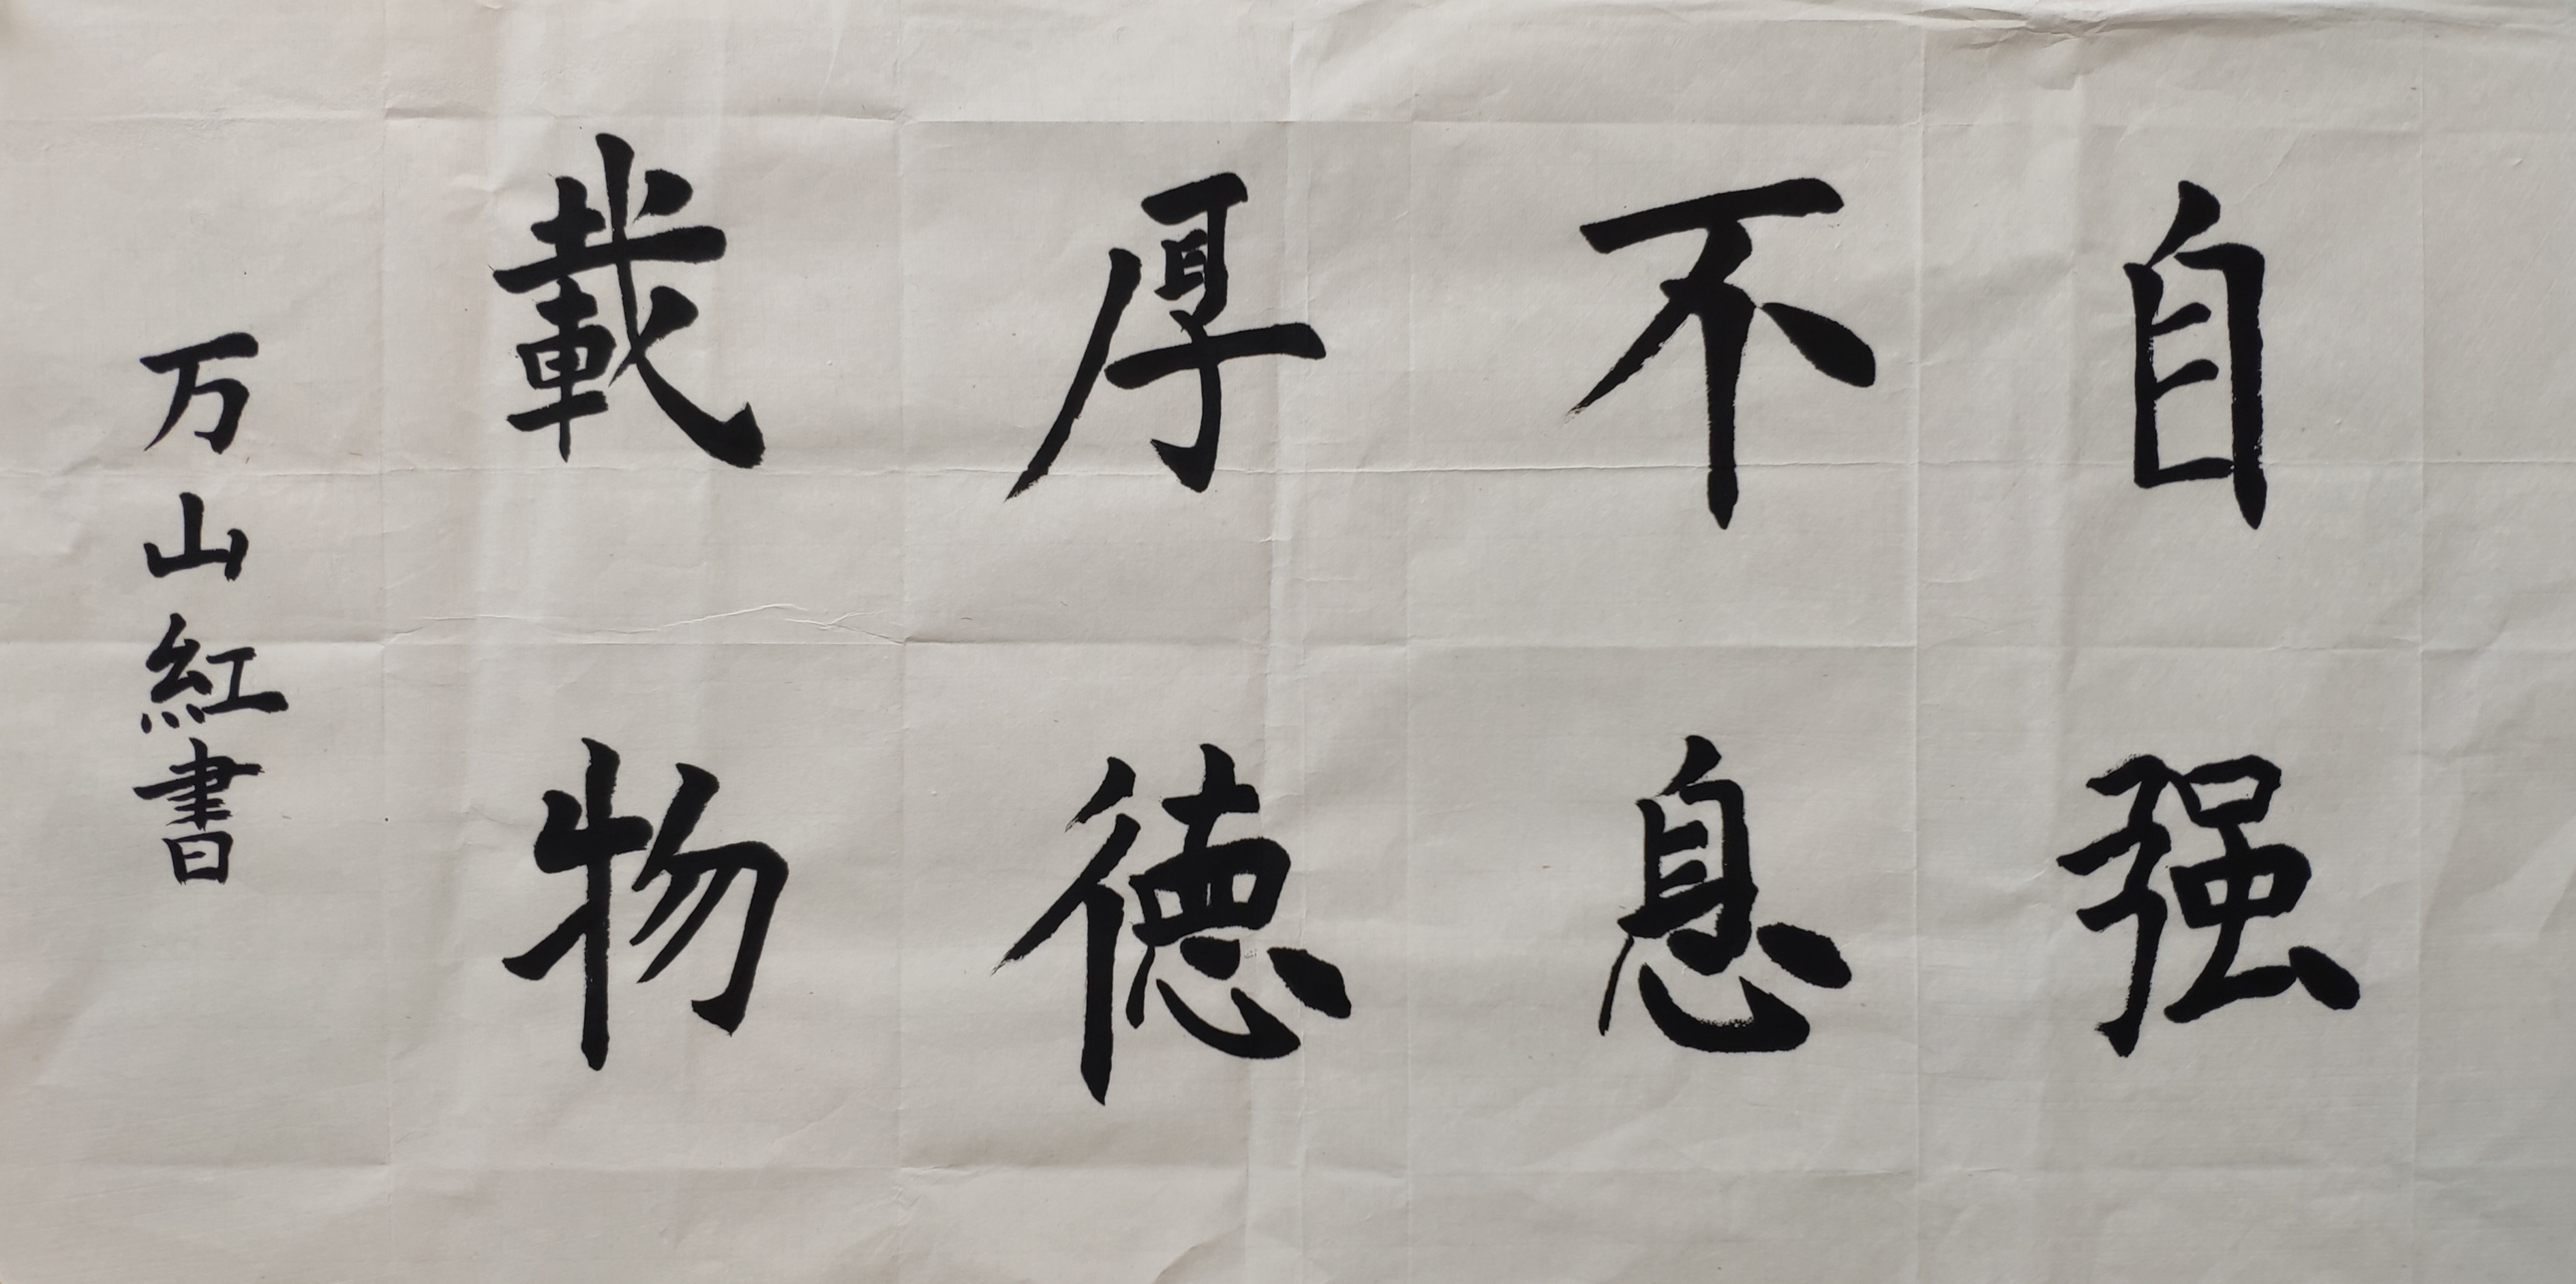 自强
不息
厚德
載物
万山紅書